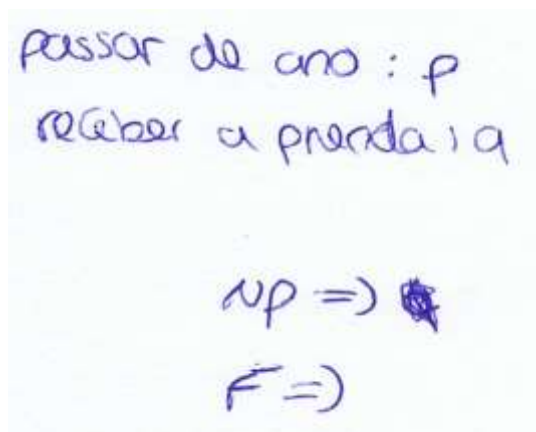 passar de ano : p
receber a prenda : q
~p =>
F =>